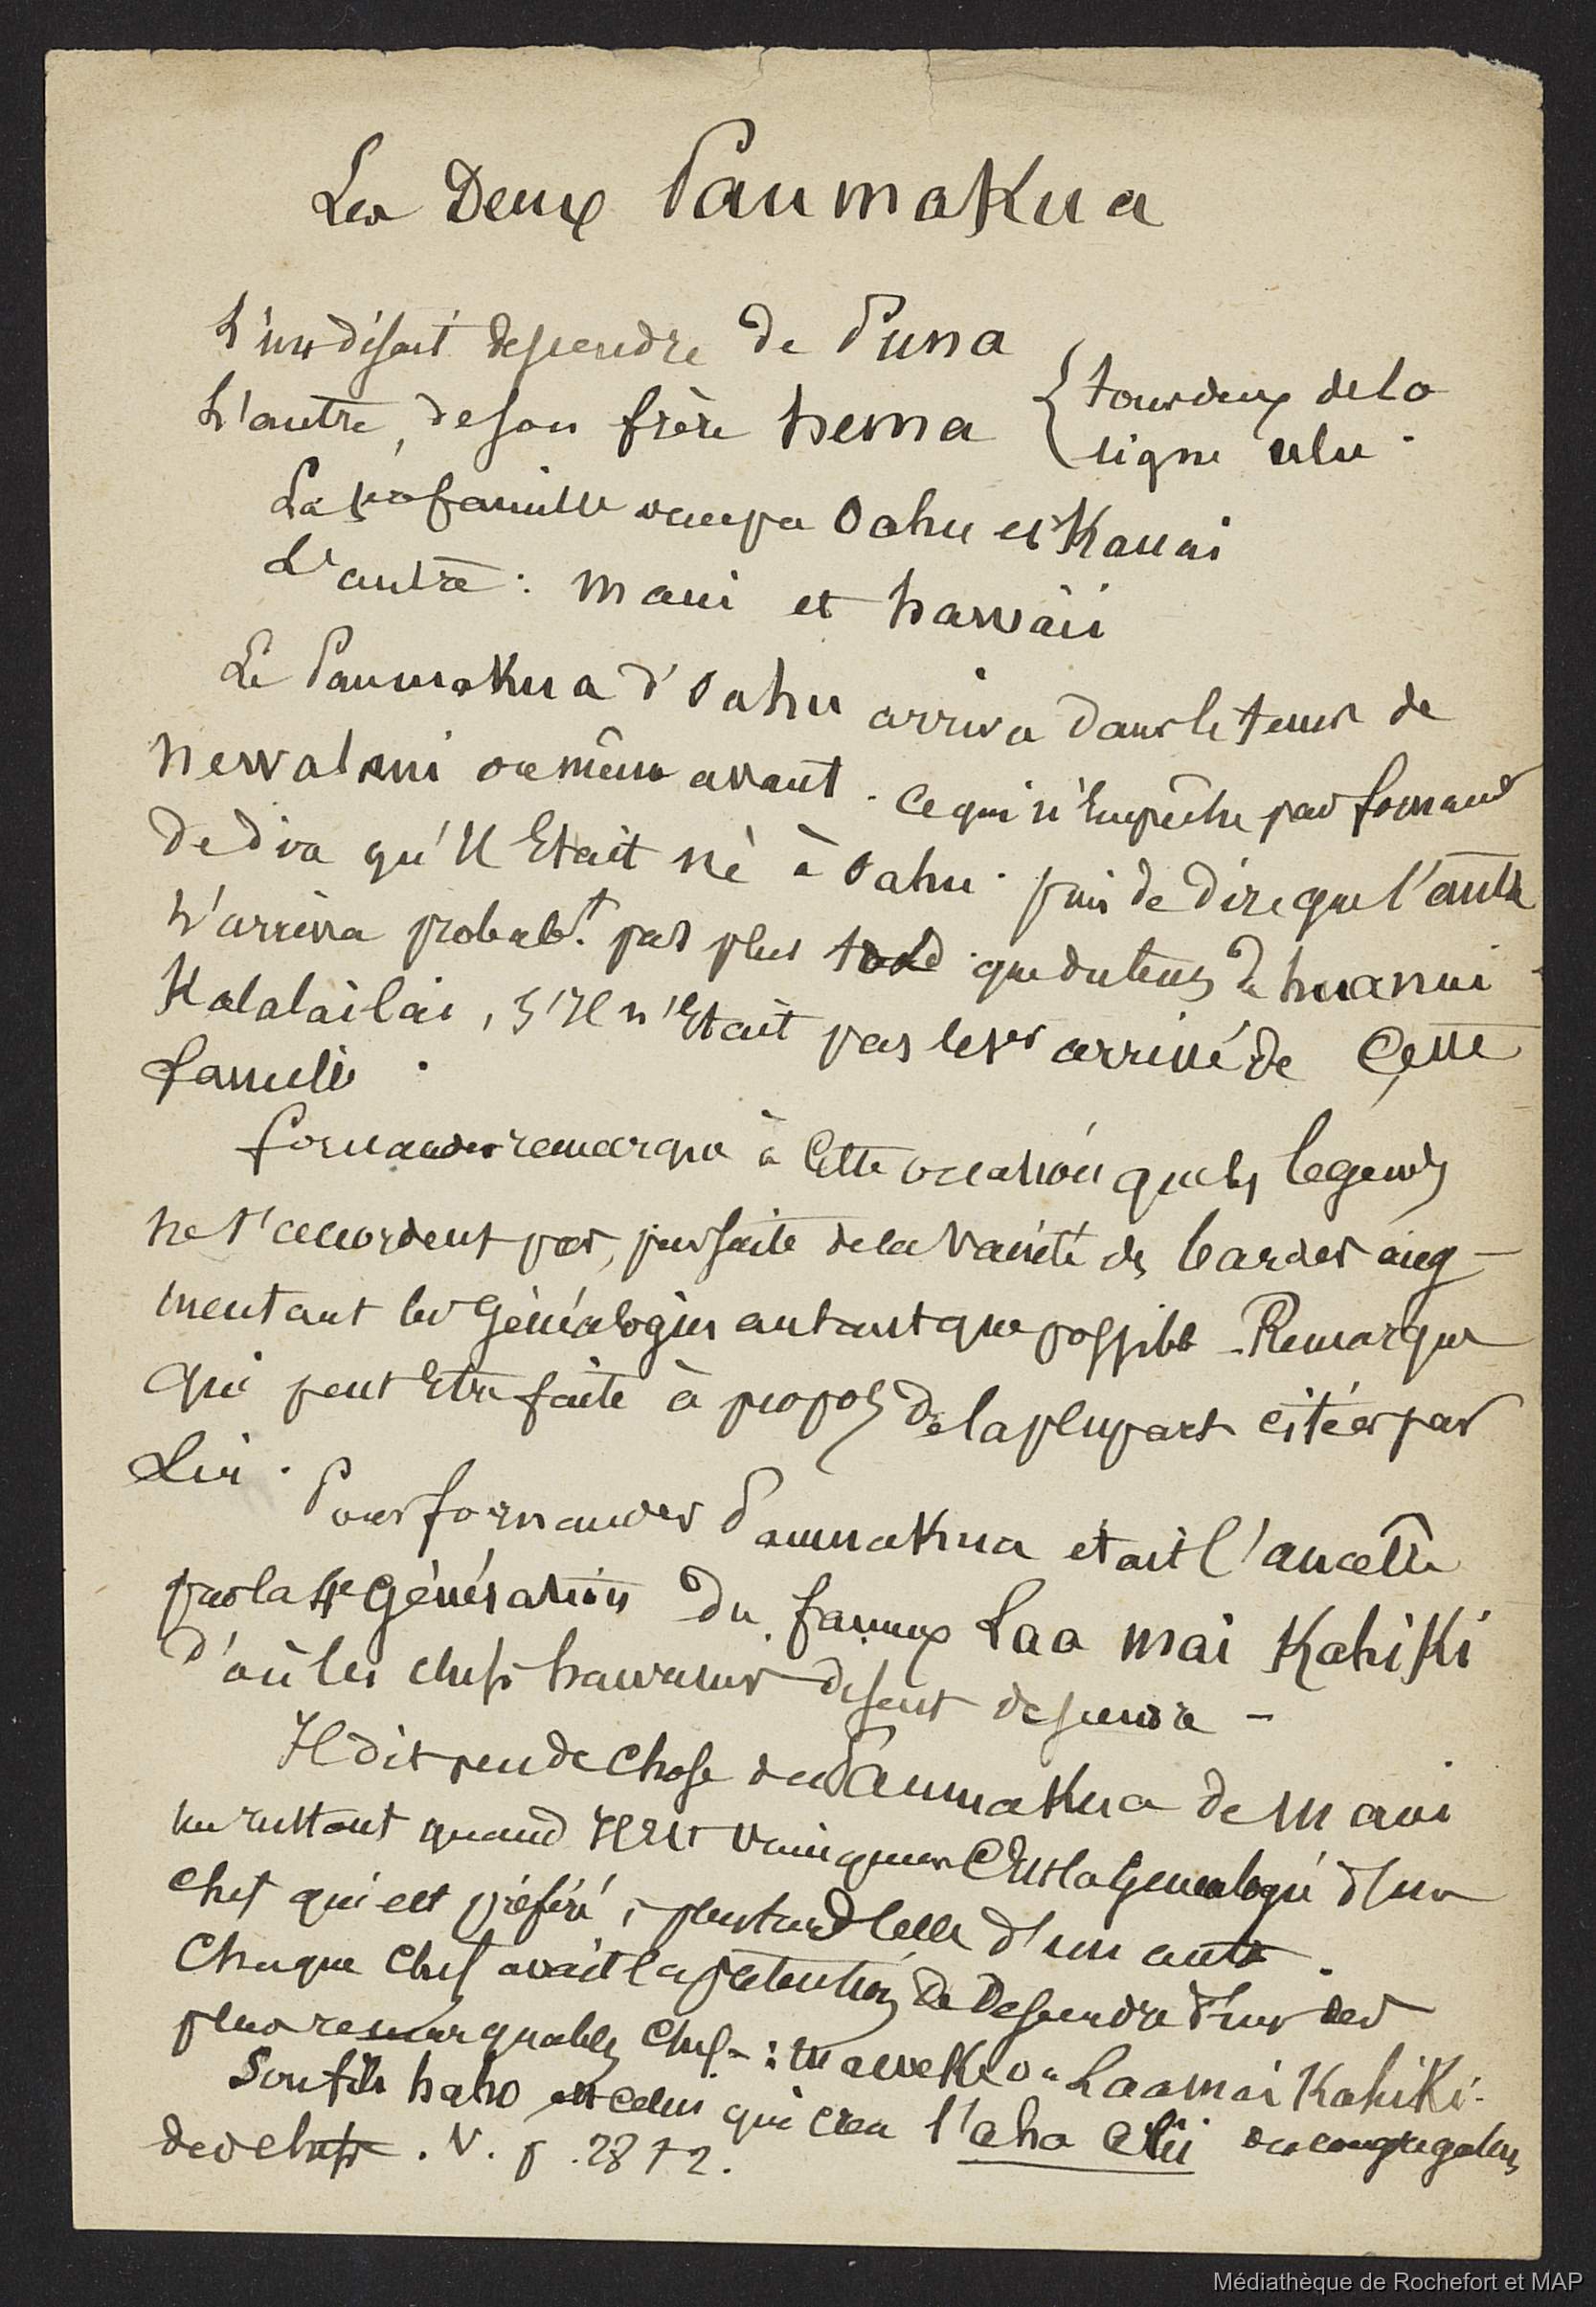 Les Deux Paumakua
L'un disait descendre de Puna
L'autre, de son frère hema { tous deux de la
ligne ulu.
La 1ère famille occupa Oahu et Kauai
L'autre : Maui et hawaii
Le Paumakua d'Oahu arriva dans le tems de
newalani ou même avant. Ce qui n'empêche pas fornand
de dire qu'Il Etait né à Oahu. puis de dire que l'autre
n'arriva probabt. pas plus tard que du tems de huanui
Kalalailai, s'Il n'Etait pas le 1er arrivé de Cette
famille.
fornander remarque à Cette occasion que les legendes
ne s'accordent pas, par suite de la vanité des bardes aug-
mentant les Généalogies autant que possible - Remarque
qui peut Etre faite à propos de la plupart citées par
Lui.
Pour fornander Paumakua était l'ancêtre
par la 4e Génération du fameux Laa mai Kahiki
d'où les chefs hawaiens disent descendre -
Il dit peu de Chose du Paumakua de Maui
surtout quand Il Est vainqueur C'Est la Généalogie d'un
Chef qui est préféré, plus tard Celle d'un autre.
Chaque Chef avait la prétention de Descendre d'un des
plus remarquables Chefs - : Maweke ou Laamai Kahiki.
Son fils haho est celui qui créa l'aha alii ou congregation
des chefs. V. p. 28 72.